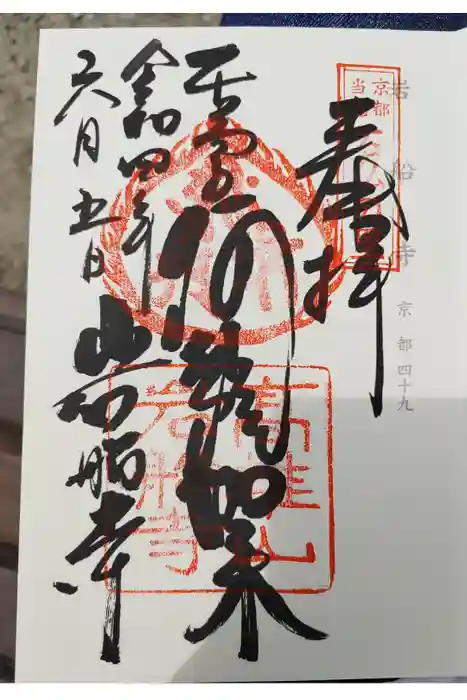 岩船寺 京都四十九
奉拝
阿弥陀如来
令和四年
六月五日 岩船寺
高雄山
岩船寺
京都